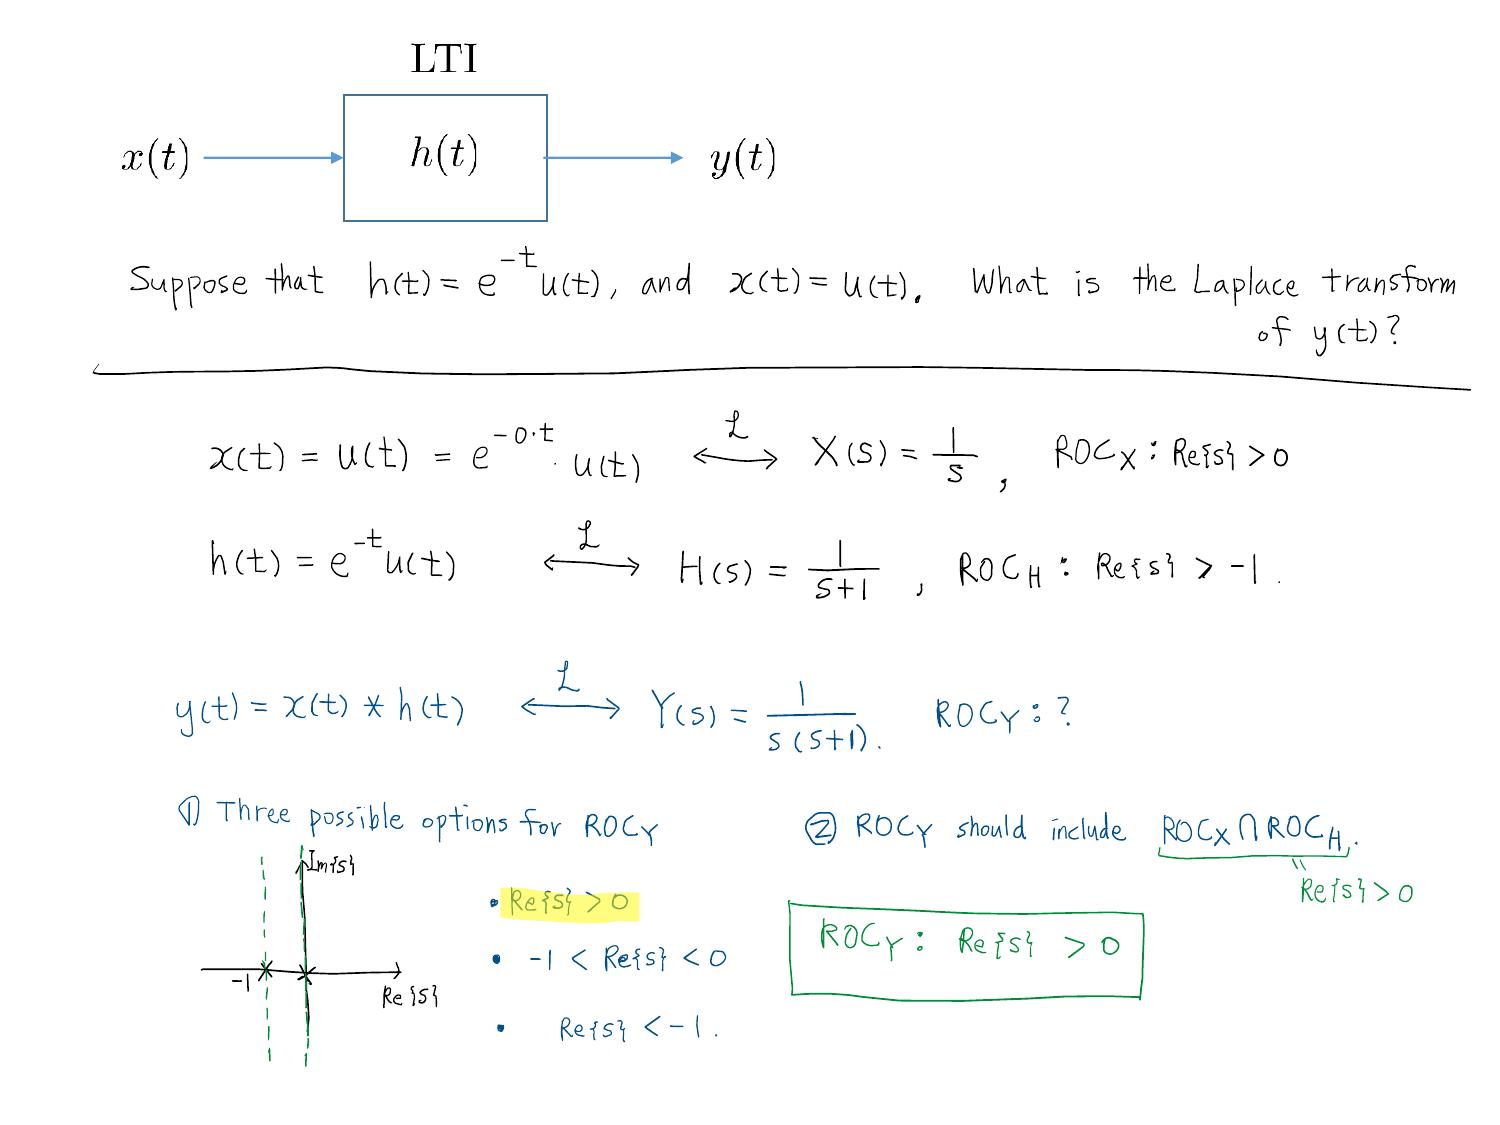 LTI
x(t) h(t) y(t)
Suppose that h(t) = e^{-t} u(t), and x(t) = u(t). What is the Laplace transform
of y(t)?
x(t) = u(t) = e^{-0·t} · u(t) ℒ ⟷ X(s) = 1/s , ROC_X : Re{s} > 0
h(t) = e^{-t} u(t) ℒ ⟷ H(s) = 1/(s+1) , ROC_H : Re{s} > -1.
y(t) = x(t) * h(t) ℒ ⟷ Y(s) = 1/(s(s+1)). ROC_Y : ?
① Three possible options for ROC_Y
Im{s}
-1
Re{s}
• Re{s} > 0
• -1 < Re{s} < 0
• Re{s} < -1.
② ROC_Y should include ROC_X ∩ ROC_H.
=
Re{s} > 0
ROC_Y : Re{s} > 0